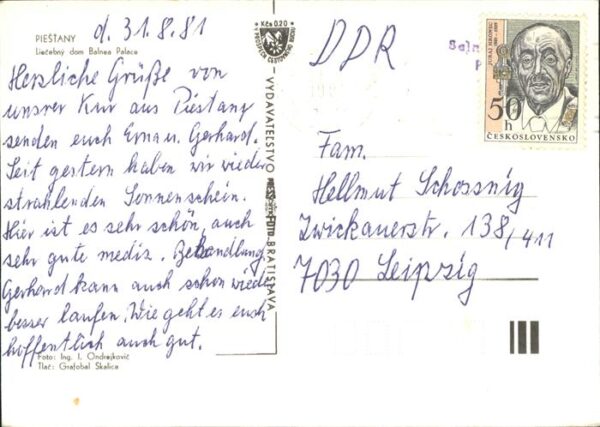 PIEŠŤANY
Liečebný dom Balnea Palace
d. 31.8.81
Herzliche Grüße von
unsrer Kur aus Piestany
senden euch Erna u. Gerhard.
Seit gestern haben wir wieder
strahlenden Sonnenschein.
Hier ist es sehr schön, auch
sehr gute mediz. Behandlung
Gerhard kann auch schon wieder
besser laufen. Wie geht es euch
hoffentlich auch gut.
Foto: Ing. I. Ondrejkovič
Tlač: Grafobal Skalica
Kčs 0,20
VYDAVATEĽSTVO
BRATISLAVA
DDR
50 h
ČESKOSLOVENSKO
Fam.
Hellmut Schossnig
Zwickauerstr. 138/411
7030 Leipzig